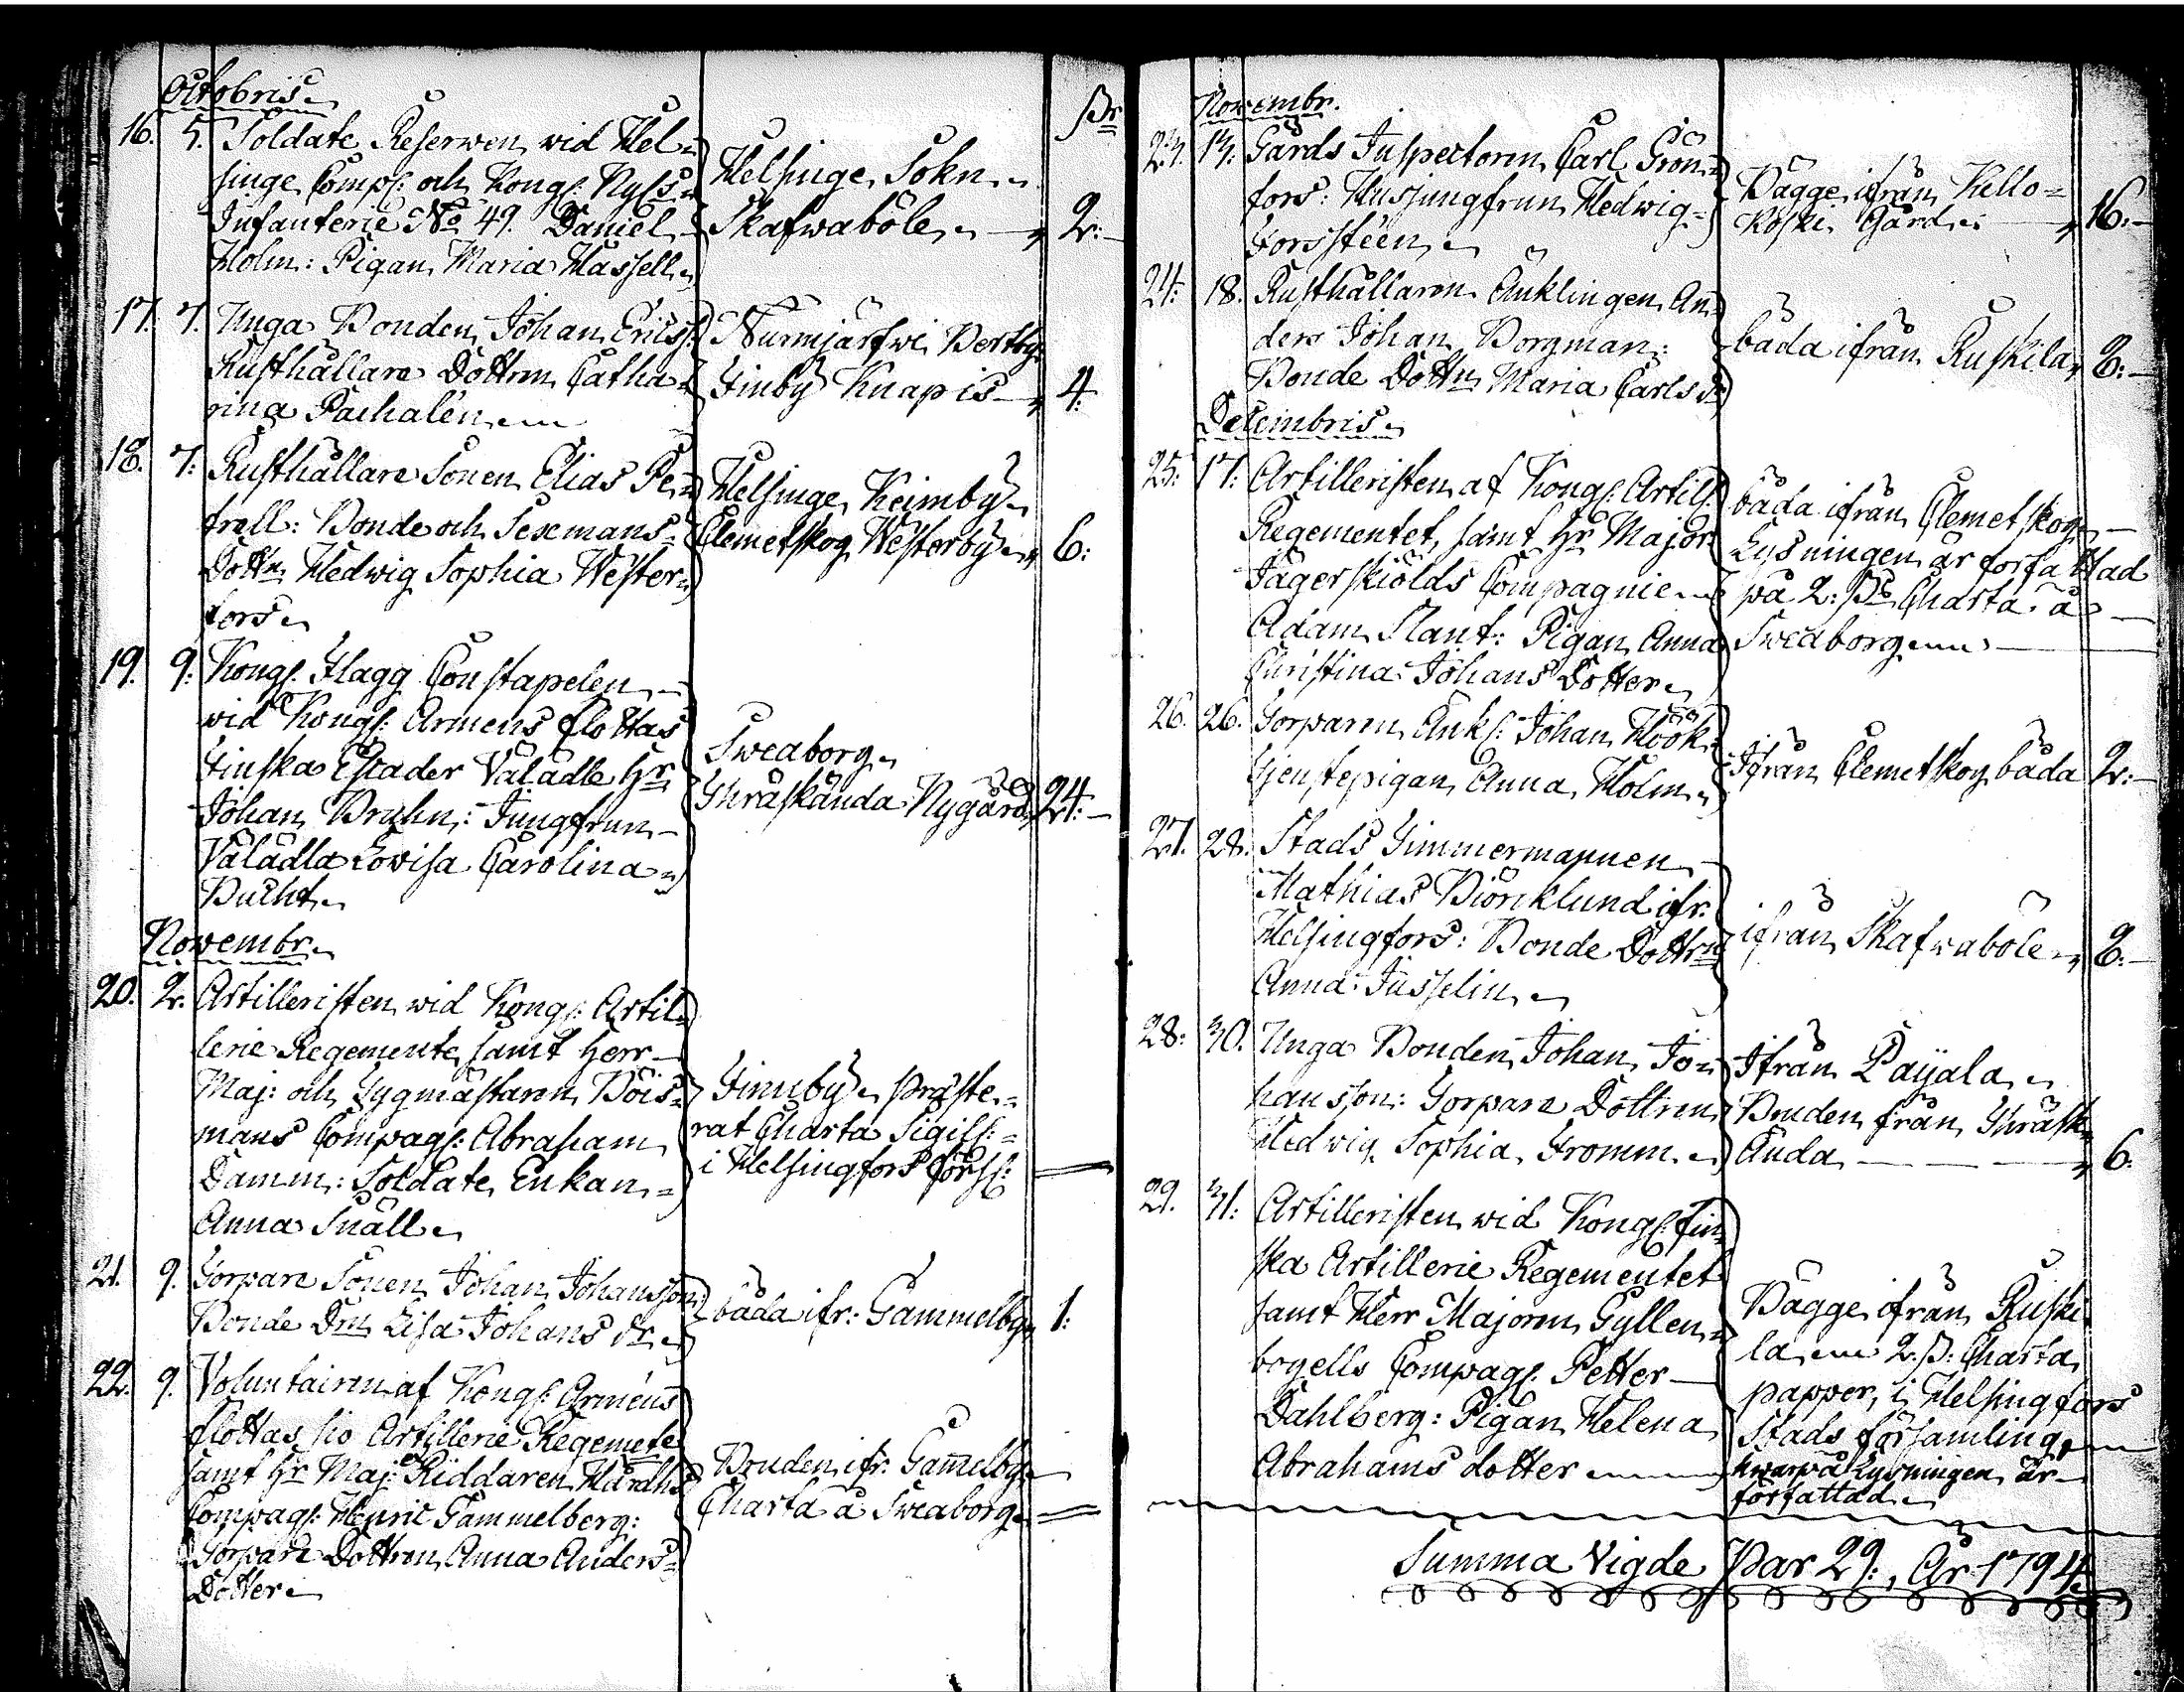 Octobris
ßr
16. 5. Soldate Reserwen wid Hel=
singe Comp: och Kongl: Nyls
Infanterie No 49. Daniel
Holm: Pigan Maria Hassell
Helsinge Sokn
Skafwaböle 2:
17. 7. Unga Bonden Johan Ericss:
Rusthållare Dottren Catha=
rina Pachalén
Nurmijärfwi Pertby
Finby Knapis 4:
18. 7: Rusthållare Sonen Elias Pe=
trell: Bonde och Sexmans=
Dottn Hedwig Sophia Wester=
fors
Helsinge Keimby
Clemetskog Westerby 6:
19. 9: Kongl. Flagg Constapelen
wid Kongl: Armens flottas
Finska Escader Välädle Hr
Johan Bruhn: Jungfrun
Välädla Lovisa Carolina
Bucht
Sweaborg
Thräskända Nygård 24:
Novembr.
20. 2. Artilleristen wid Kongl: Artil=
lerie Regemente samt Herr
Maj: och Tygmästaren Böis=
mans Compagl: Abraham
Damm: Soldate Enkan
Anna Snäll
Finnby præste=
rat Charta Sigill:
i Helsingfors förs:
21. 9. Torpare Sonen Johan Johansson:
Bonde Drn Lisa Johans dr
båda ifr: Gammelby 1:
22. 9. Voluntairen af Kongl: Armens
flottas sio Artillerie Regemete
samt Hr Maj: Riddaren Hårdhs
Compagl: Henric Gammelberg:
Torpare Dottren Anna Anders=
Dotter
Bruden ifr: Gammelby
Charta å Sweaborg
Novembr.
23. 13: Gårds Inspectoren Carl Grön=
fors: Husjungfrun Hedwig
Forsstéen
Bägge ifrån Kello=
koski Gård 16:
24: 18. Rusthållaren Änklingen An=
ders Johan Borgman:
Bonde Dottn Maria Carls dr
båda ifrån Ruskila 8:
Decembris
25: 17: Artilleristen af Kongl: Artill:
Regementet, samt Hr Major
Jägerskiölds Compagnie
Adam Slant: Pigan Anna
Christina Johans Dotter
båda ifrån Clemetskog
Lysningen är författad
på 2: ßr Charta å
Sweaborg
26. 26. Torparen Änkl: Johan Höök:
Tjenstepigan Anna Holm
Ifrån Clemetskog båda 2:
27. 28. Stads Timmermannen
Mathias Biörcklund ifr.
Helsingfors: Bonde Dottrn
Anna Jusselin
ifrån Skafwaböle 8:
28: 30. Unga Bonden Johan Jo=
hansson: Torpare Dottren
Hedwig Sophia Fromm
Ifrån Paijala
Bruden från Thräsk
Ända 6:
29. 31: Artilleristen wid Kongl: fin
ska Artillerie Regementet
samt Herr Majoren Gyllen=
bögells Compagl: Petter
Dahlberg: Pigan Helena
Abrahams dotter
Bägge ifrån Ruski
la 2. ß. Charta
papper, i Helsingfors
Stads församling
hwarpå Lysningen är
författad
Summa Vigde Par 29:, År 1794